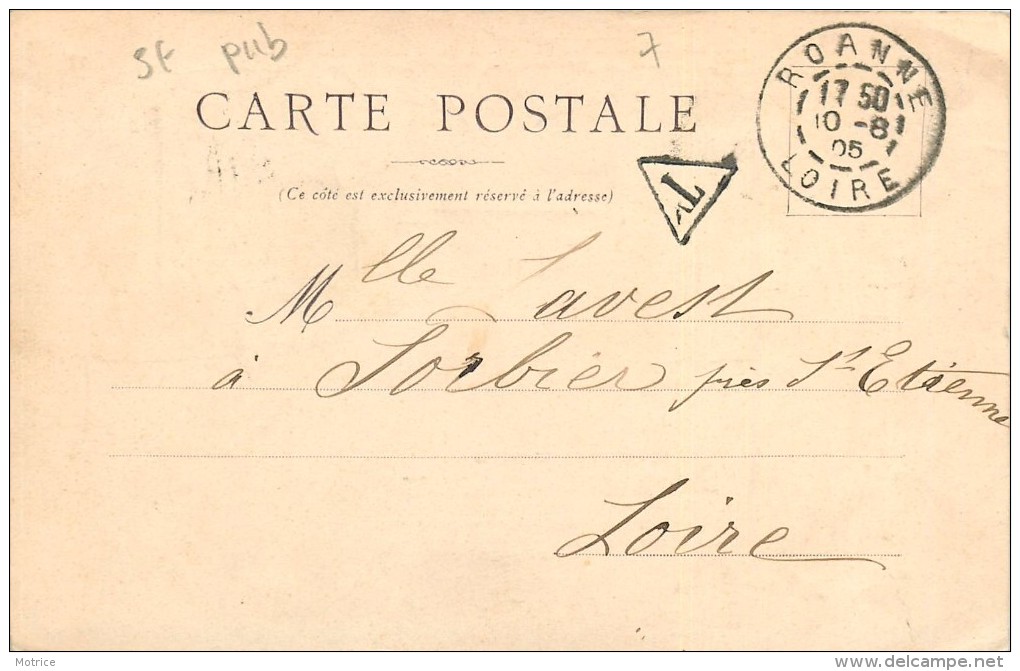 sf pub 7
CARTE POSTALE
(Ce côté est exclusivement réservé à l'adresse)
ROANNE
17 50
10 -8
05
LOIRE
T
Mlle Savest
à Sorbier près St Etienne
Loire
Motrice
delcampe.net